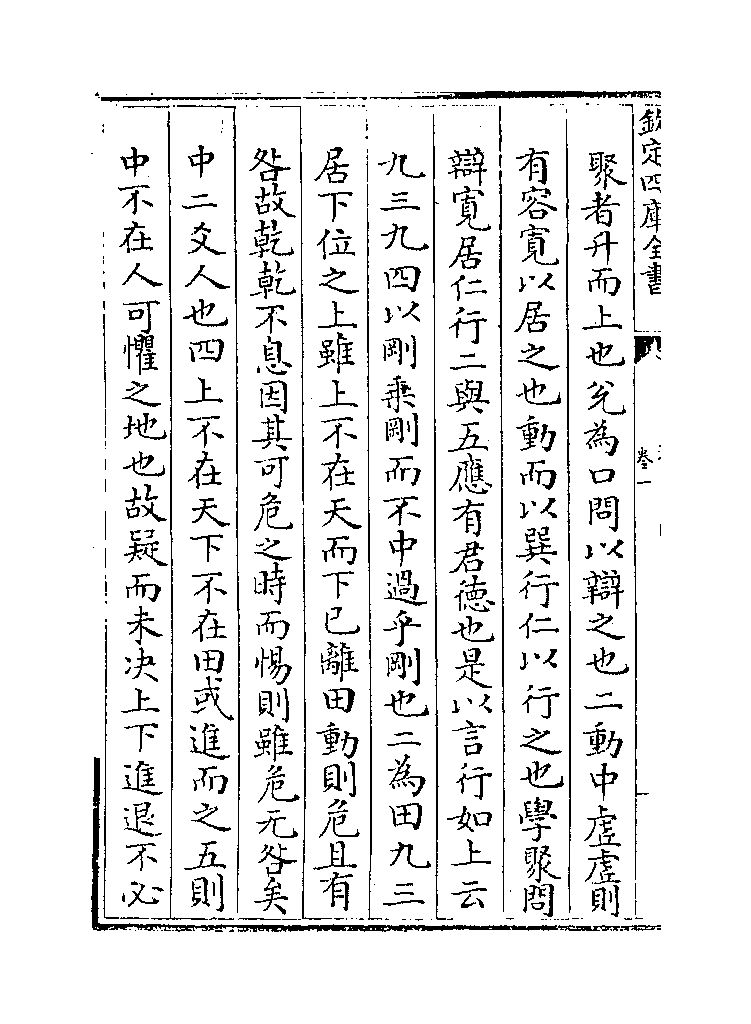 欽定四庫全書
卷一
聚者升而上也兊為口問以辯之也二動中虛虛則
有容寛以居之也動而以巽行仁以行之也學聚問
辯寛居仁行二與五應有君徳也是以言行如上云
九三九四以剛乗剛而不中過乎剛也二為田九三
居下位之上雖上不在天而下已離田動則危且有
咎故乾乾不息因其可危之時而惕則雖危无咎矣
中二爻人也四上不在天下不在田或進而之五則
中不在人可懼之地也故疑而未决上下進退不必